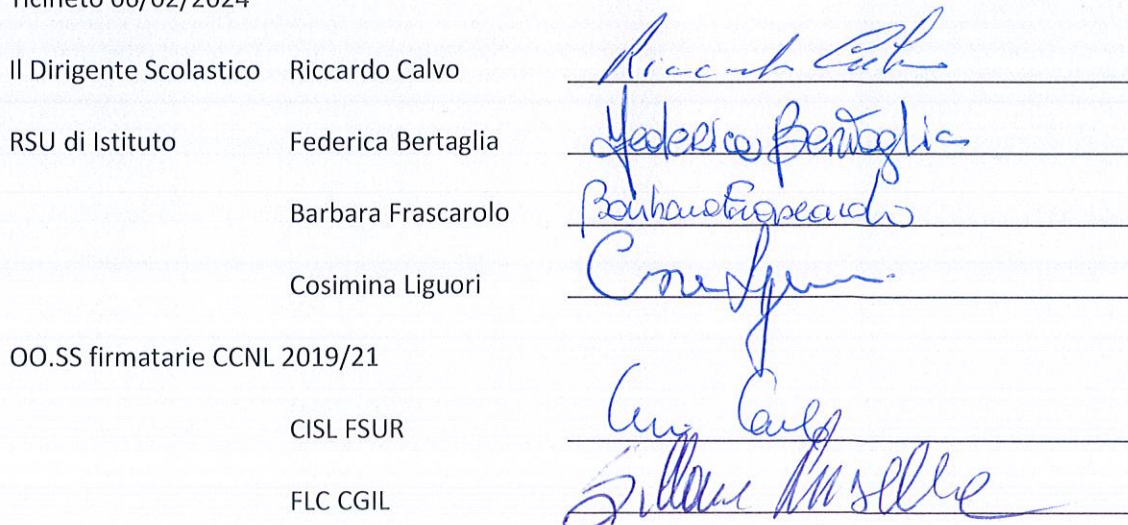 Ticineto 06/02/2024
Il Dirigente Scolastico Riccardo Calvo Riccardo Calvo
RSU di Istituto Federica Bertaglia Federica Bertaglia
Barbara Frascarolo Barbara Frascarolo
Cosimina Liguori
OO.SS firmatarie CCNL 2019/21
CISL FSUR
FLC CGIL